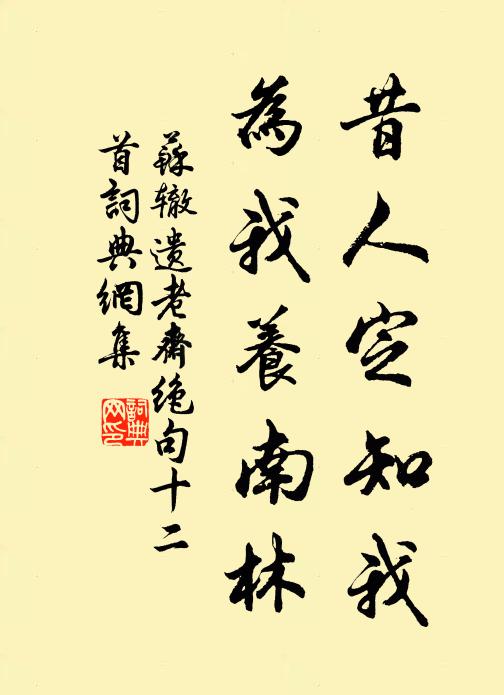 昔人定知我
為我養南林
蘇辙遗老齋绝句十二
首詞典網集
詞典
网印